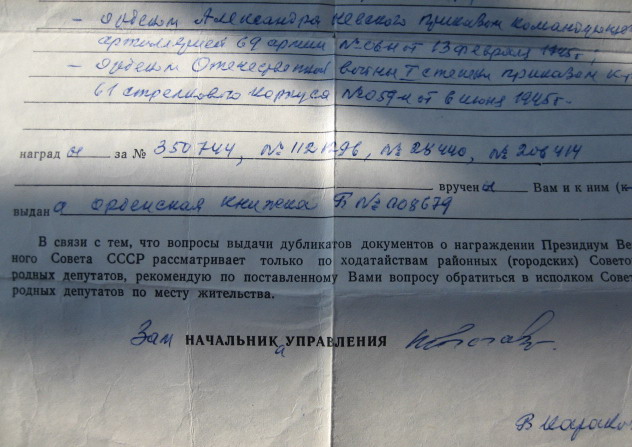 – орденом Александра Невского приказом командующе
артиллерией 69 армии № 06н от 13 февраля 1945г;
– орденом Отечественной войны I степени приказом к
61 стрелкового корпуса № 059н от 6 июня 1945г.
наград ы за № 350744, № 1121296, № 28440, № 206414
вручены Вам и к ним (к
выдана орденская книжка Б № 008679
В связи с тем, что вопросы выдачи дубликатов документов о награждении Президиум Ве
ного Совета СССР рассматривает только по ходатайствам районных (городских) Советов
родных депутатов, рекомендую по поставленному Вами вопросу обратиться в исполком Совет
родных депутатов по месту жительства.
Зам НАЧАЛЬНИКа УПРАВЛЕНИЯ